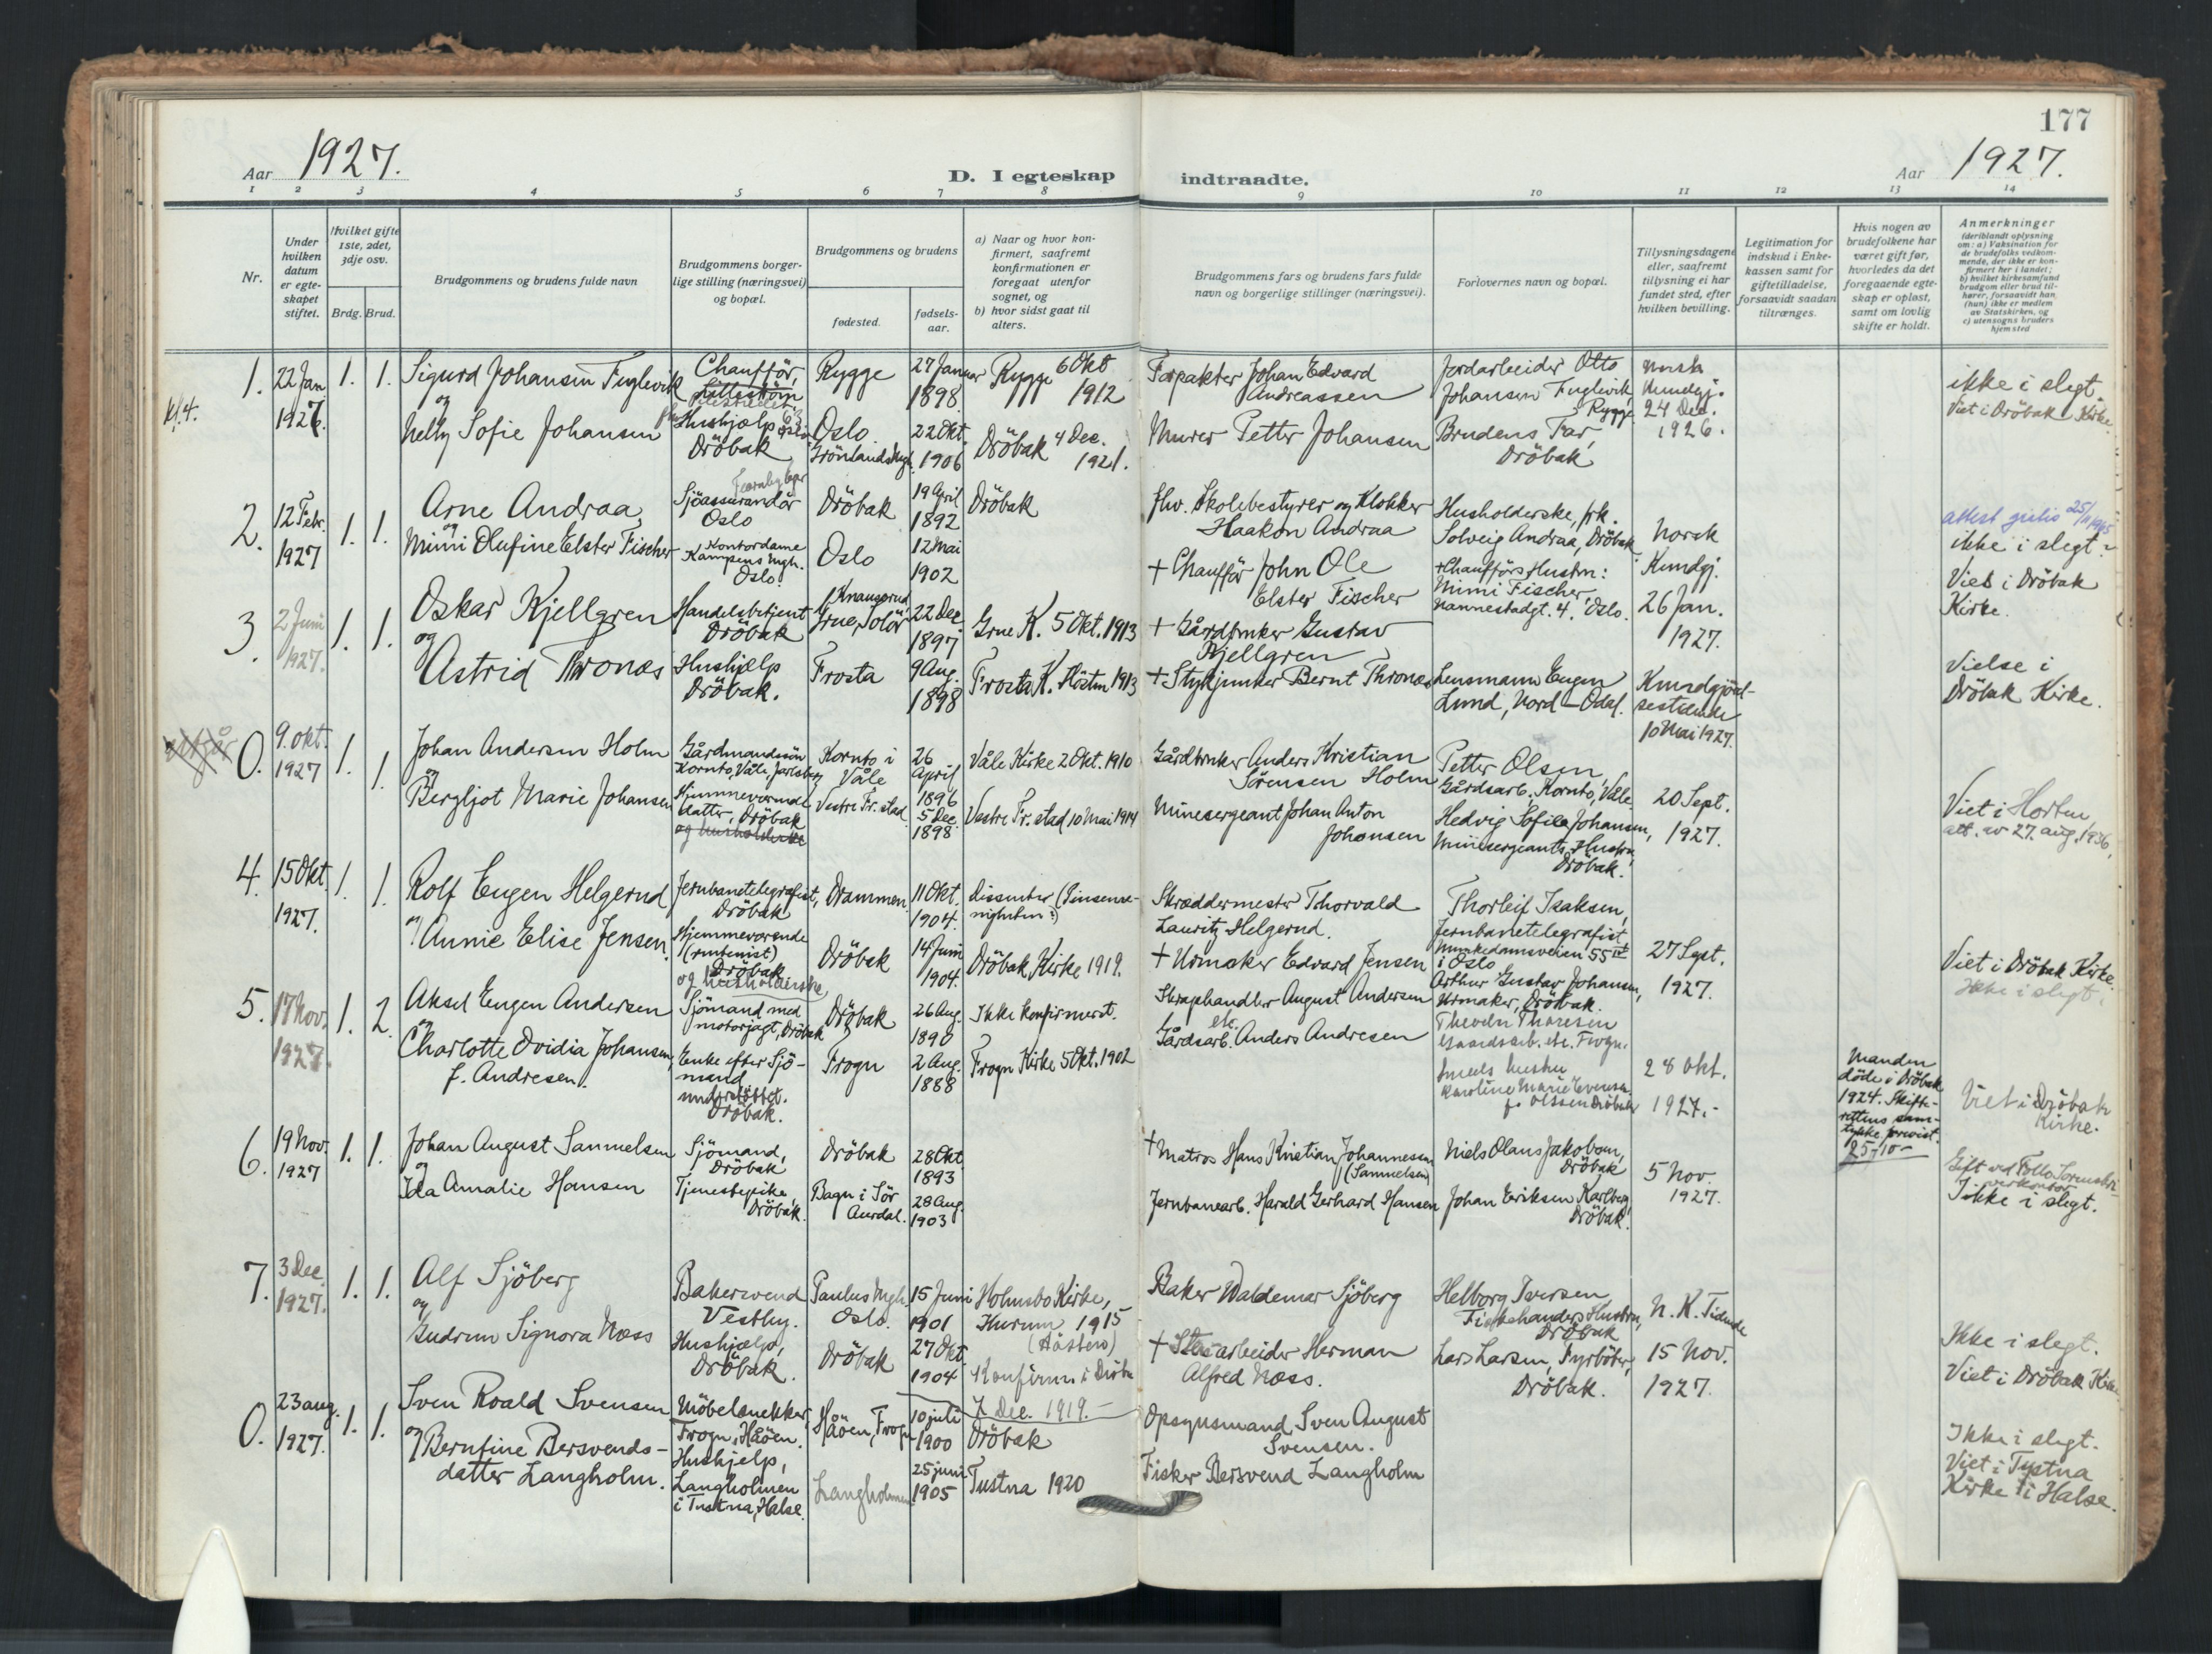 177
Aar 1927.
D. I egteskap indtraadte.
Aar 1927.
1 2 3 4 5 6 7 8 9 10 11 12 13 14
Nr.
Under hvilken datum er egteskapet stiftet.
Hvilket gifte 1ste, 2det, 3dje osv.
Brdg. Brud.
Brudgommens og brudens fulde navn
Brudgommens borgerlige stilling (næringsvei) og bopæl.
Brudgommens og brudens
fødested.
fødselsaar.
a) Naar og hvor konfirmert, saafremt konfirmationen er foregaat utenfor sognet, og
b) hvor sidst gaat til alters.
Brudgommens fars og brudens fars fulde navn og borgerlige stillinger (næringsvei).
Forlovernes navn og bopæl.
Tillysningsdagene eller, saafremt tillysning ei har fundet sted, efter hvilken bevilling.
Legitimation for indskud i Enkekassen samt for giftetilladelse, forsaavidt saadan tiltrænges.
Hvis nogen av brudefolkene har været gift før, hvorledes da det foregaaende egteskap er opløst, samt om lovlig skifte er holdt.
Anmerkninger
(deriblandt oplysning om: a) Vaksination for de brudefolks vedkommende, der ikke er konfirmert her i landet; b) hvilket kirkesamfund brudgom eller brud tilhører, forsaavidt han (hun) ikke er medlem av Statskirken, og c) utensogns bruders hjemsted
1. kl. 4. 22 Jan 1927. 1. 1.
Sigurd Johansen Fuglevik
og
Nelly Sofie Johansen
Chaufför,
Hushjælp
Dröbak
Rygge 27 Januar 1898
Oslo Grönlands Mgh. 22 Okt. 1906
Rygge 6 Okt 1912
Dröbak 4 Dec. 1921.
Forpakter Johan Edvard Andreassen
Murer Petter Johansen
Jordarbeider Otto Johansen Fuglevik, Rygge
Brudens Far, Dröbak
Norsk Kundgj. 24 Dec. 1926.
ikke i slegt.
Viet i Dröbak Kirke.
2. 12 Febr. 1927 1. 1.
Arne Andraa,
og
Mimi Olufine Elster Fischer
Sjöassurandör
Oslo
Kontordame
Kampens Mgh.
Oslo.
Dröbak 19 April 1892
Oslo 12 Mai 1902
Dröbak
fhv. Skolebestyrer og Klokker Haakon Andraa
+ Chaufför John Ole Elster Fischer
Husholderske, frk. Solveig Andraa, Dröbak
+ Chaufförs Hustru: Mimi Fischer Nannestadgt. 4. Oslo.
Norsk Kundgj. 26 Jan. 1927.
attest
ikke i slegt.
Viet i Dröbak Kirke.
3. 2 Juni 1927. 1. 1.
Oskar Kjellgren
og
Astrid Thronæs
Handelsbetjent
Dröbak
Hushjælp
Dröbak.
Grue, Solör 22 Dec 1897
Frosta 9 Aug. 1898
Grue K. 5 Okt. 1913
Frosta K. Hösten 1913
+ Gårdbruker Gustav Kjellgren
+ Stykjunker Bernt Thronæs
Lensmann Eugen Lund, Nord-Odal.
Kundgjörelsestidende 10 Mai 1927.
Vielse i Dröbak Kirke.
0. 9. okt. 1927 1. 1.
Johan Andersen Holm
og
Bergljot Marie Johansen
Gårdmandssön
Kornto, Våle, Jarlsberg
Hjemmeværende
datter, Dröbak
og husholderske
Kornto i Våle 26 April 1896
Vestre Fr. stad 5 Dec 1898
Våle Kirke 2 Okt. 1910
Vestre Fr. stad 10 Mai 1914
Gårdbruker Anders Kristian Sörensen Holm
Minesergeant Johan Anton Johansen
Petter Olsen Gårdsarb. Kornto, Våle
Hedvig Sofie Johansen, Minesergeants Hustru, Dröbak.
20 Sept. 1927.
Viet i Horten,
att. av 27. aug. 1936.
4. 15 Okt. 1927. 1. 1.
Rolf Eugen Helgerud
og
Annie Elise Jensen
Jernbanetelegrafist,
Dröbak
Hjemmeværende
(rentenist)
Dröbak
og husholderske
Drammen 11 Okt. 1904.
Dröbak 14 Juni 1904.
Dissenter
Dröbak Kirke 1919.
Skræddermester Thorvald Lauritz Helgerud.
+ Urmaker Edvard Jensen
Thorleif Isaksen, Jernbanetelegrafist Munkedamsveien 55 i Oslo
Arthur Gustav Johansen, Urmaker, Dröbak.
27 Sept. 1927.
Viet i Dröbak Kirke.
Ikke i slegt.
5. 17 Nov. 1927. 1. 2.
Aksel Eugen Andersen
og
Charlotte Ovidia Johansen,
f. Andresen.
Sjömand med
motorjagt, Dröbak
Enke efter Sjömand
understöttet.
Dröbak.
Dröbak 26 Aug. 1890
Frogn 2 Aug. 1888
Ikke konfirmeret.
Frogn Kirke 5 Okt. 1902
Skraphandler August Andersen
Gårdsarb. etc. Anders Andresen
Theodor Thoresen Gaardsarb. etc. Frogn.
hustru Karoline Marie Evensen f. Olssen Dröbak
28 Okt. 1927.-
Manden döde i Dröbak 1924. Skifterettens samtykke forevist. 25/10-
Viet i Dröbak Kirke.
6. 19 Nov. 1927 1. 1.
Johan August Samuelsen
og
Ida Amalie Hansen
Sjömand,
Dröbak
Tjenestepike,
Dröbak.
Dröbak 28 Okt 1893
Bagn i Sör Aurdal. 28 Aug. 1903
+ Matros Hans Kristian Johannessen (Samuelsen)
Jernbanearb. Harald Gerhard Hansen
Niels Olaus Jakobsen, Dröbak
Johan Eriksen Karlberg, Dröbak.
5 Nov. 1927.
Gift ved Follo Sorenskriverkontor.
Ikke i slegt.
7. 3 Dec. 1927. 1. 1.
Alf Sjöberg
og
Gudrun Signora Næss
Bakersvend
Vestby.
Hushjælp,
Dröbak.
Paulus Mgh. Oslo. 15 Juni 1901
Dröbak 27 Okt 1904
Holmsbo Kirke, Hurum 1915 (Hösten)
Konfirm. i Dröbak 7 Dec. 1919.-
Baker Waldemar Sjöberg
+ Stenarbeider Herman Alfred Næss.
Helborg Iversen, Fiskehandlers Hustru, Dröbak
Lars Larsen, Fyrböter, Dröbak.
N. K. Tidende 15 Nov. 1927.
Ikke i slegt.
Viet i Dröbak Kirke
0. 23 aug. 1927. 1. 1.
Sven Roald Svensen
og Berntine Bersvendsdatter Langholm.
Möbelsnekker,
Frogn, Håöen.
Hushjelp,
Langholmen
i Tustna, Halse.
Håöen, Frogn 10 juli 1900
Langholmen 25 juni 1905
Dröbak
Tustna 1920
Opsynsmand Sven August Svensen.
Fisker Bersvend Langholm
Ikke i slegt.
Viet i Tustna
Kirke i Halse.